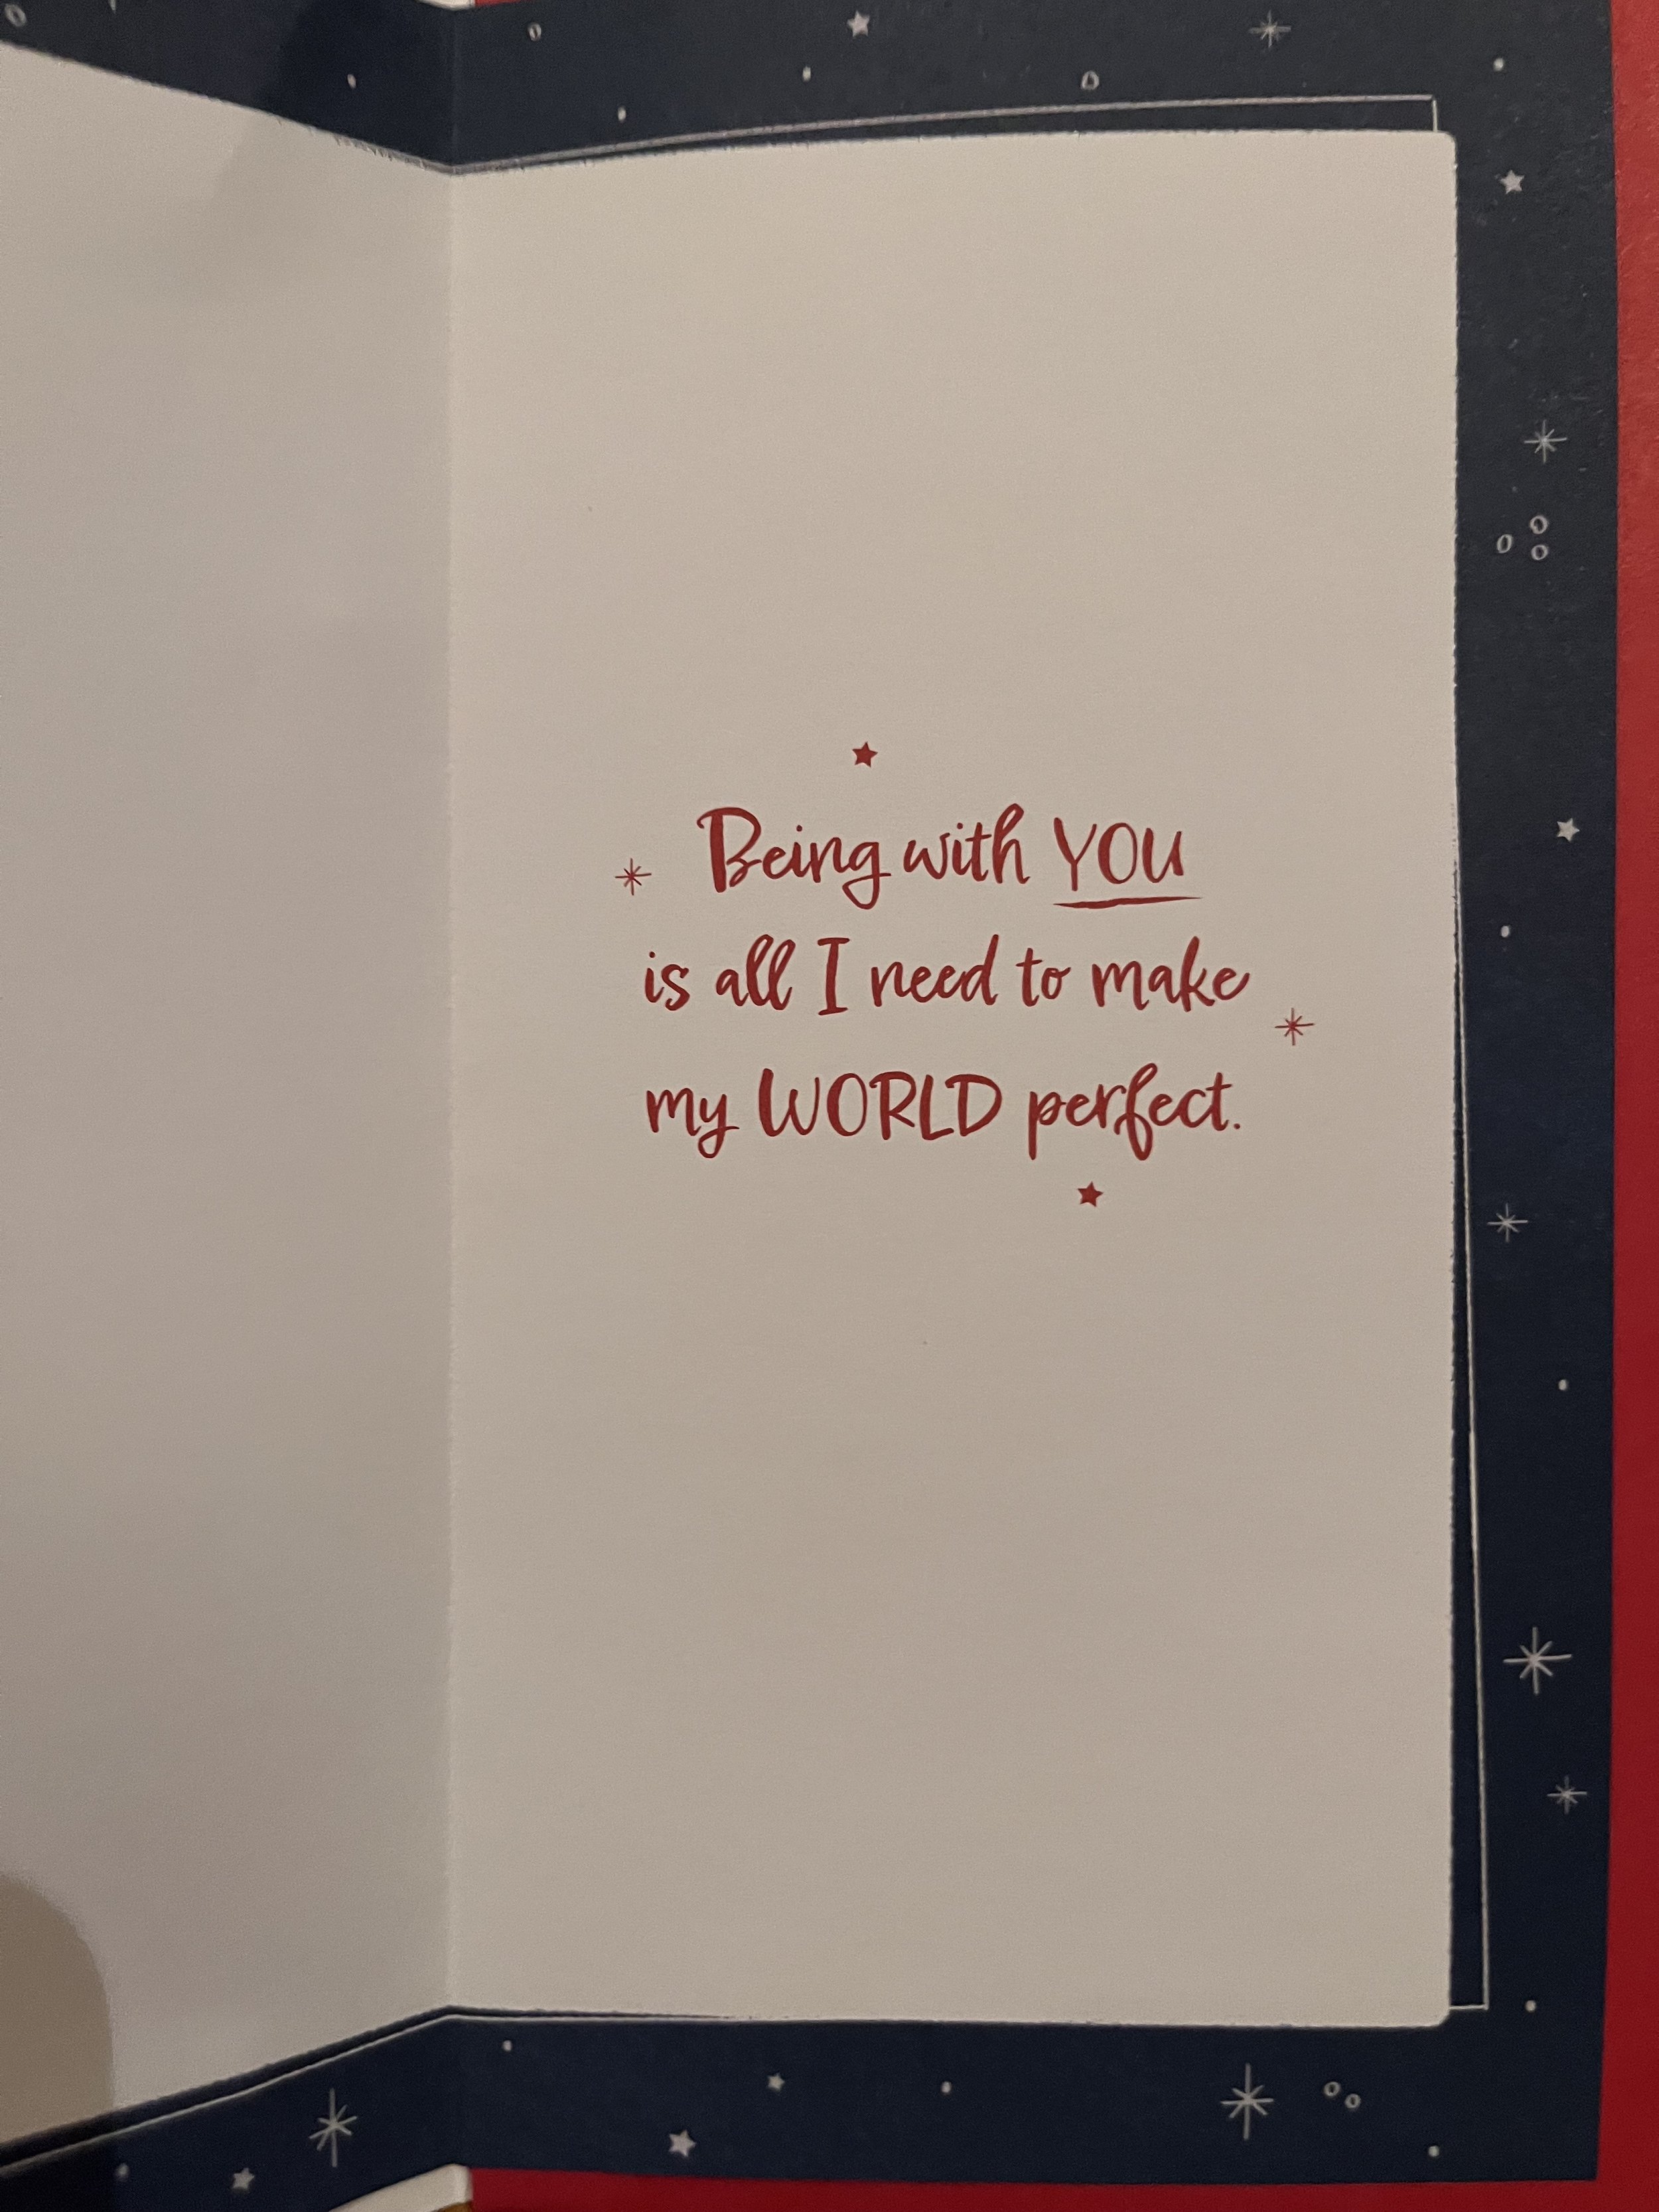 Being with YOU
is all I need to make
my WORLD perfect.